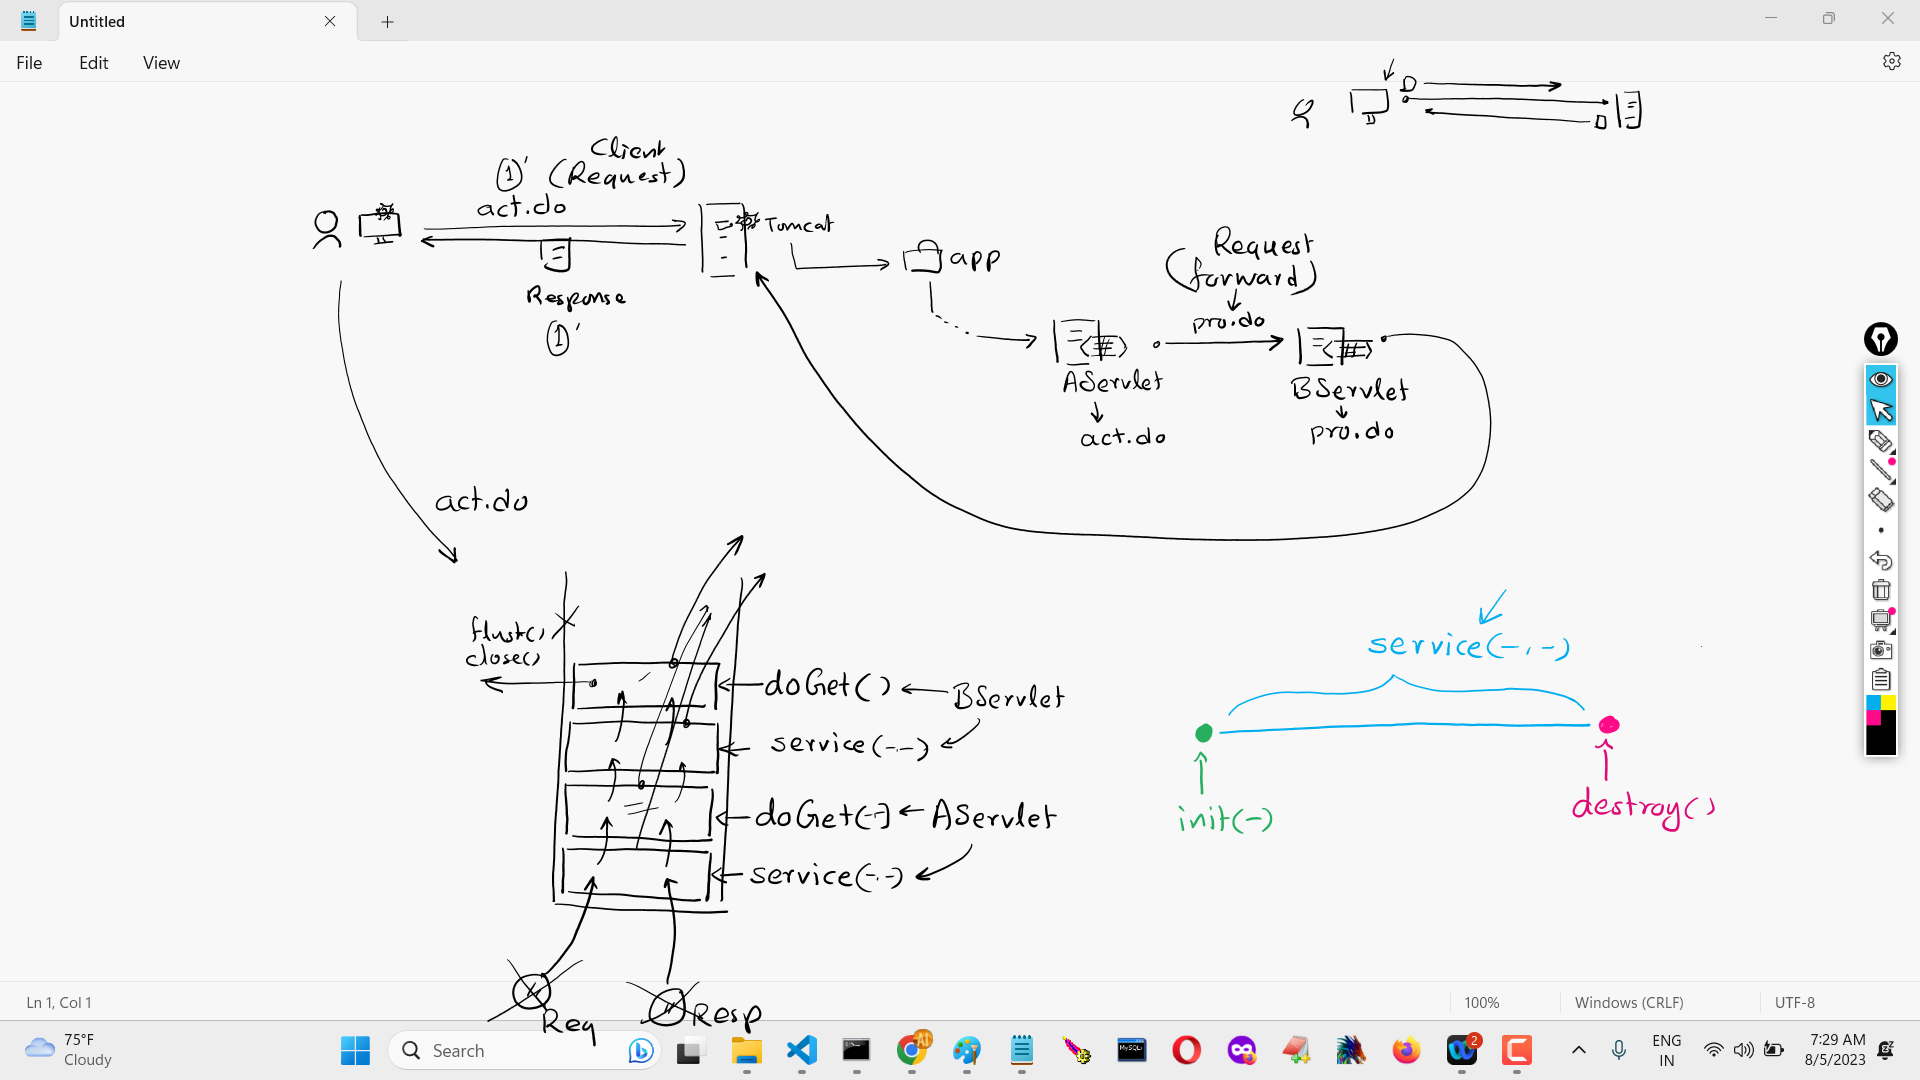 Untitled
File Edit View
Client
1' (Request)
act.do
Tomcat
Response
1'
app
Request
(forward)
pro.do
AServlet
act.do
BServlet
pro.do
act.do
flust()
close()
doGet()
BServlet
service(-,-)
doGet(--)
AServlet
service(-,-)
Req
Resp
service(-,-)
init(-)
destroy()
Ln 1, Col 1
100%
Windows (CRLF)
UTF-8
75°F
Cloudy
Search
AI
MySQL
2
ENG
IN
7:29 AM
8/5/2023